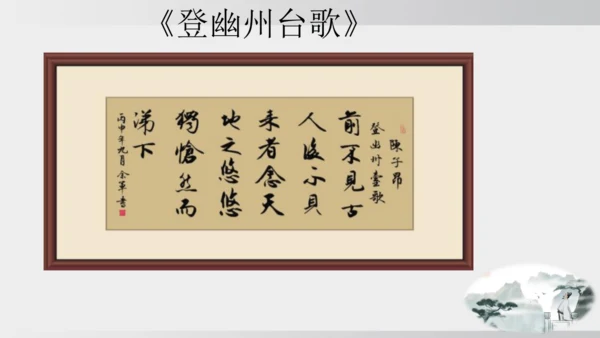 《登幽州台歌》
陳子昂
登幽州臺歌
前不見古
人後不見
来者念天
地之悠悠
獨愴然而
涕下
丙申年九月 書